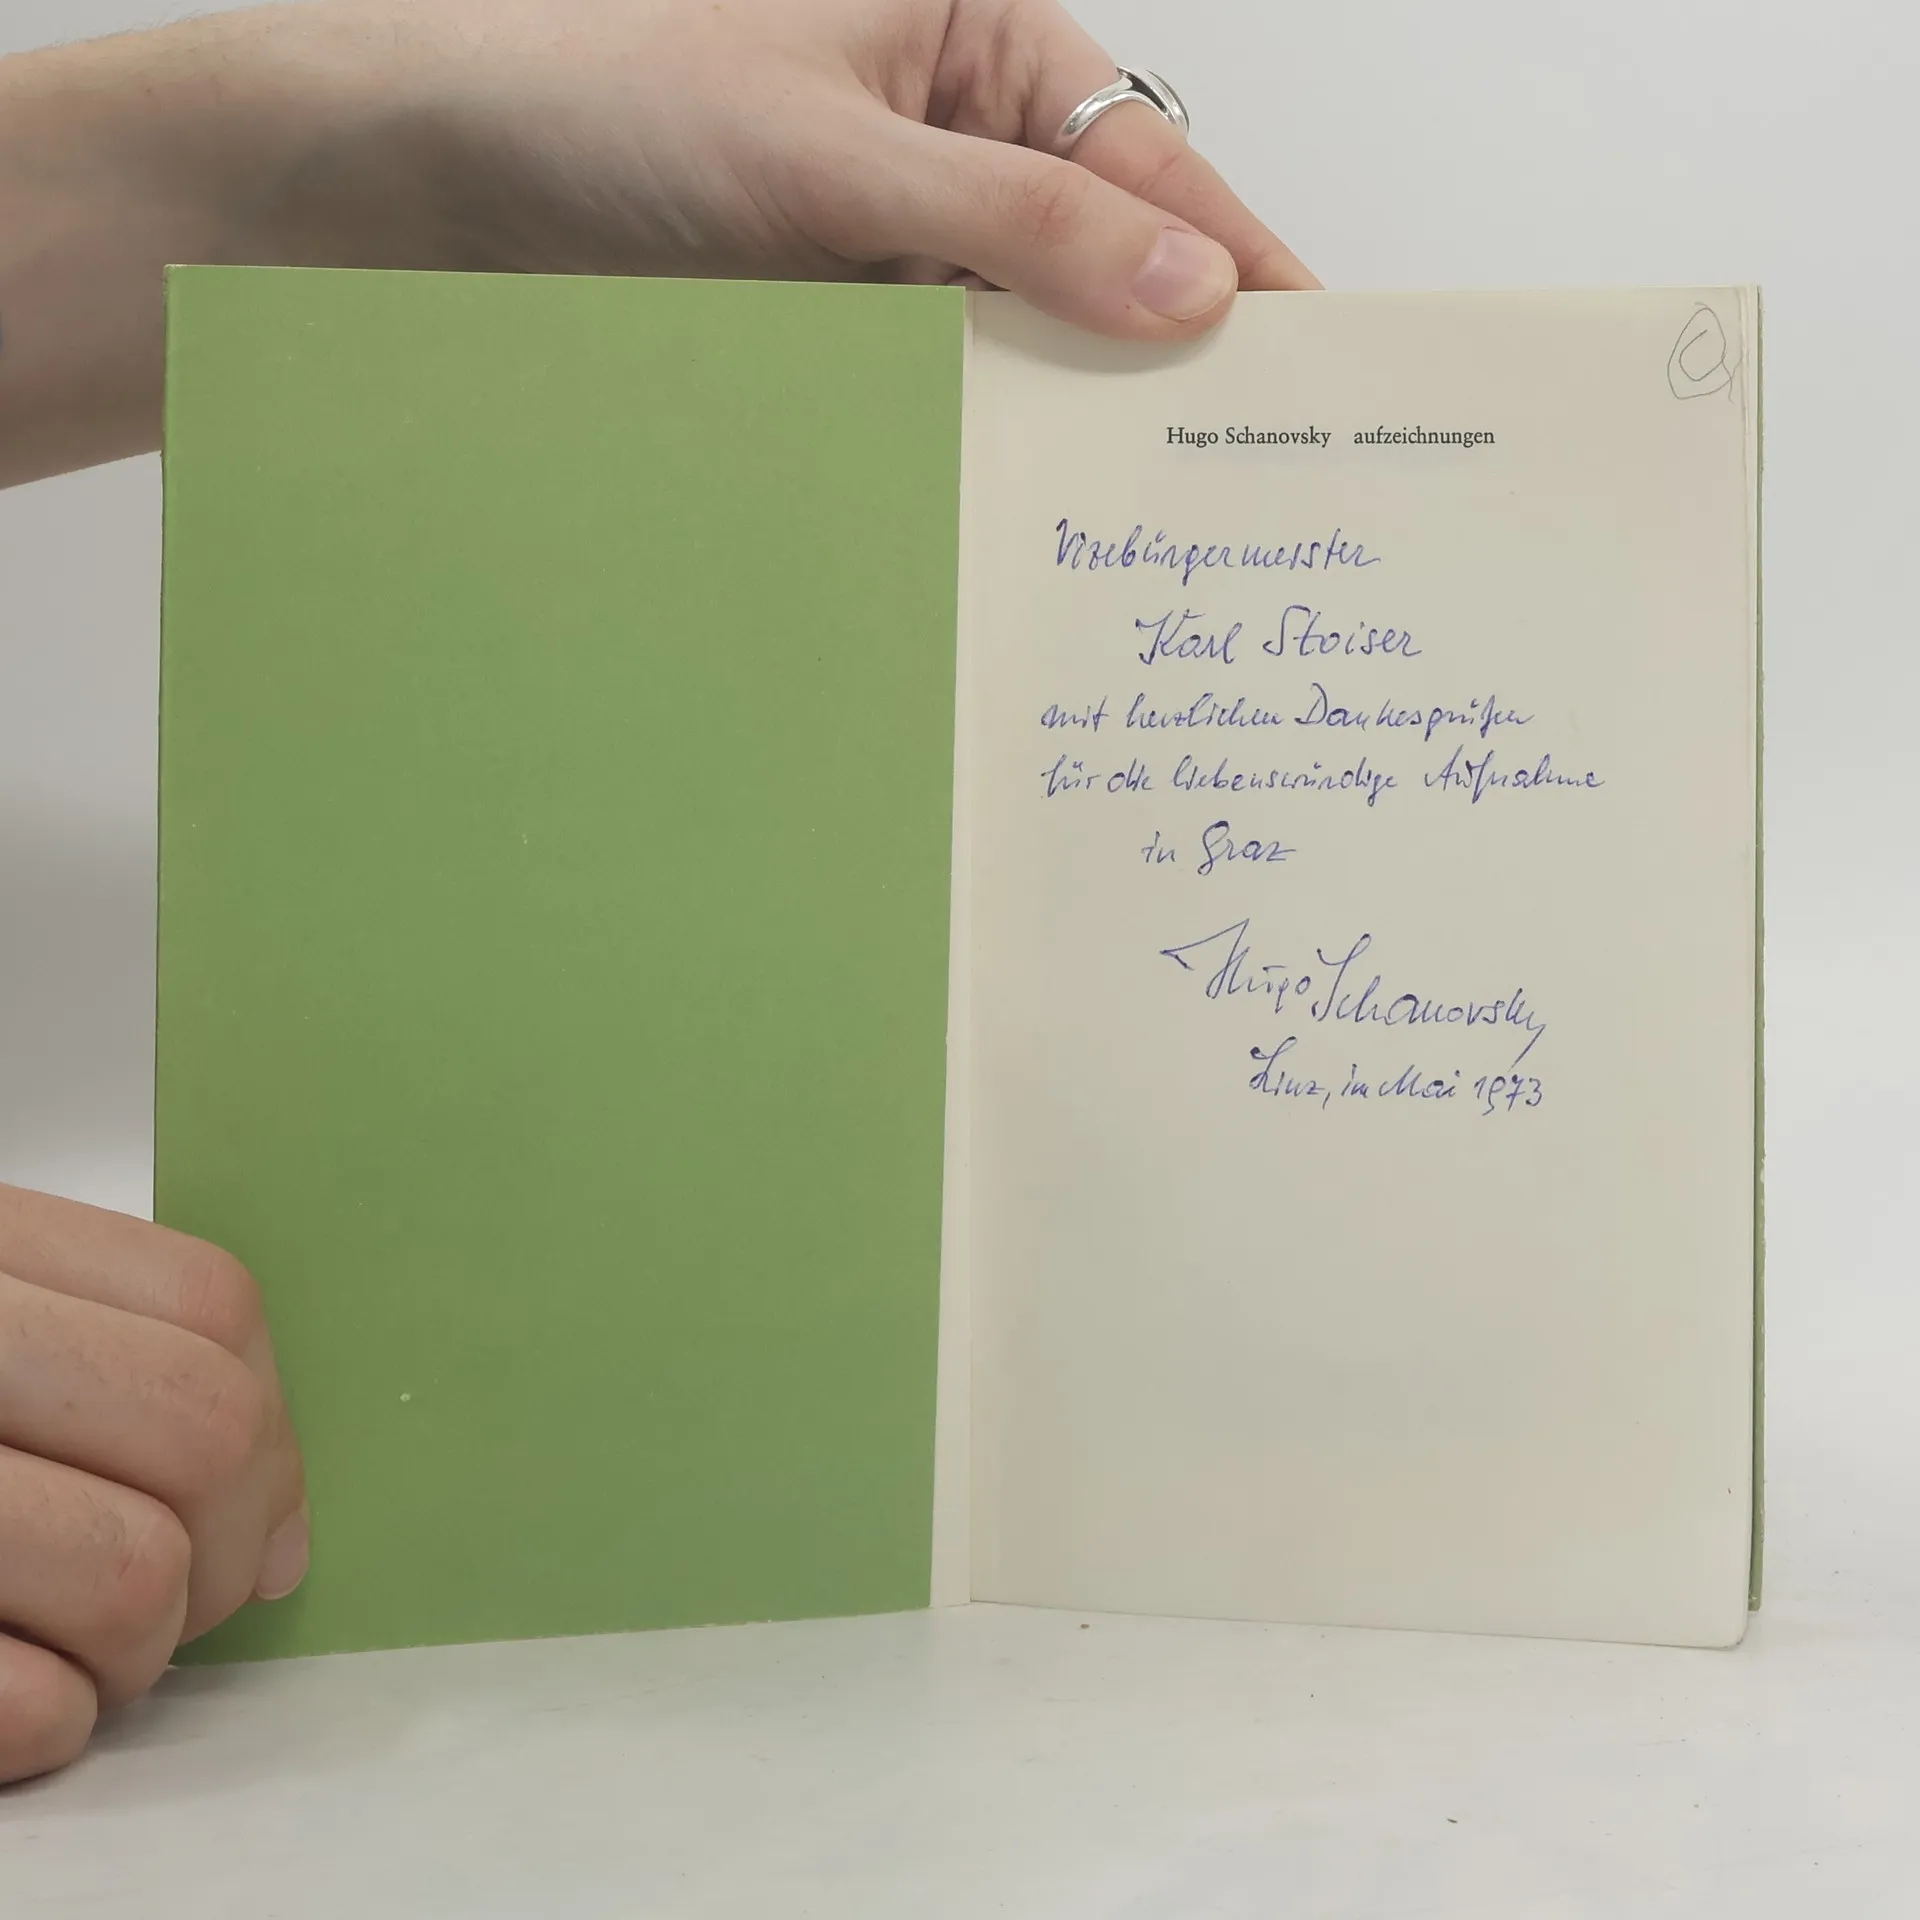 Hugo Schanovsky aufzeichnungen
Vizebürgermeister
Karl Stoiser
mit herzlichen Dankesgrüßen
für die liebenswürdige Aufnahme
in Graz
Hugo Schanovsky
Linz, im Mai 1973